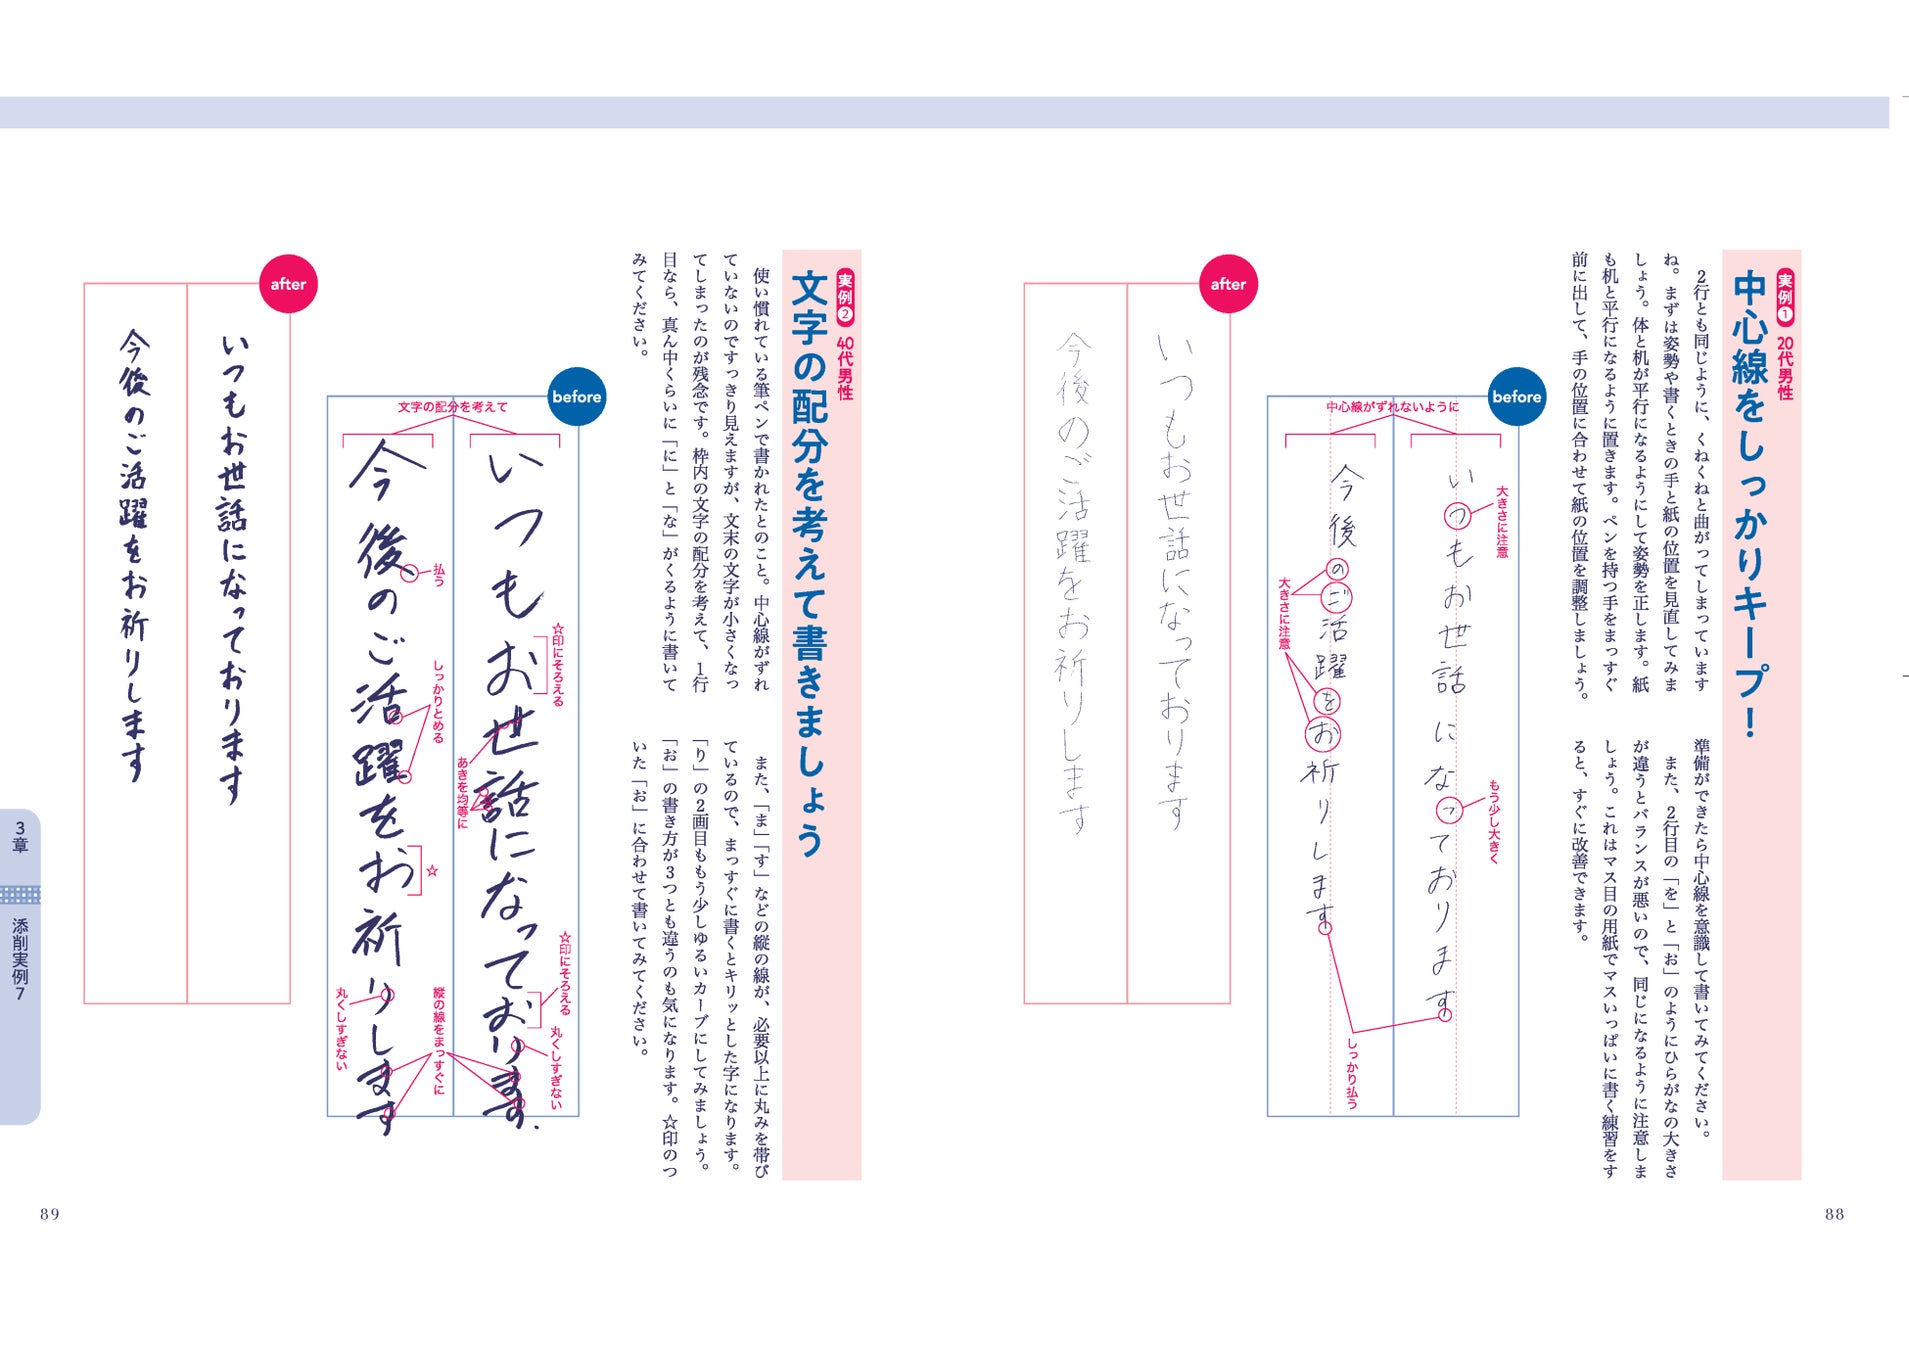 実例1 20代男性
中心線をしっかりキープ！
2行とも同じように、くねくねと曲がってしまっています
ね。まずは姿勢や書くときの手と紙の位置を見直してみま
しょう。体と机が平行になるようにして姿勢を正します。紙
も机と平行になるように置きます。ペンを持つ手をまっすぐ
前に出して、手の位置に合わせて紙の位置を調整しましょう。
準備ができたら中心線を意識して書いてみてください。
また、2行目の「を」と「お」のようにひらがなの大きさ
が違うとバランスが悪いので、同じになるように注意しま
しょう。これはマス目の用紙でマスいっぱいに書く練習をす
ると、すぐに改善できます。
before
中心線がずれないように
大きさに注意
もう少し大きく
いつもお世話になっております
大きさに注意
今後のご活躍をお祈りします
しっかり払う
after
いつもお世話になっております
今後のご活躍をお祈りします
88
実例2 40代男性
文字の配分を考えて書きましょう
使い慣れている筆ペンで書かれたとのこと。中心線がずれ
ていないのですっきり見えますが、文末の文字が小さくなっ
てしまったのが残念です。枠内の文字の配分を考えて、1行
目なら、真ん中くらいに「に」と「な」がくるように書いて
みてください。
また、「ま」「す」などの縦の線が、必要以上に丸みを帯び
ているので、まっすぐに書くとキリッとした字になります。
「り」の2画目ももう少しゆるいカーブにしてみましょう。
「お」の書き方が3つとも違うのも気になります。☆印のつ
いた「お」に合わせて書いてみてください。
before
文字の配分を考えて
☆印にそろえる
☆印にそろえる
丸くしすぎない
いつもお世話になっております.
あきを均等に
払う
しっかりとめる
☆
縦の線をまっすぐに
今後のご活躍をお祈りします
丸くしすぎない
after
いつもお世話になっております
今後のご活躍をお祈りします
3章
添削実例7
89